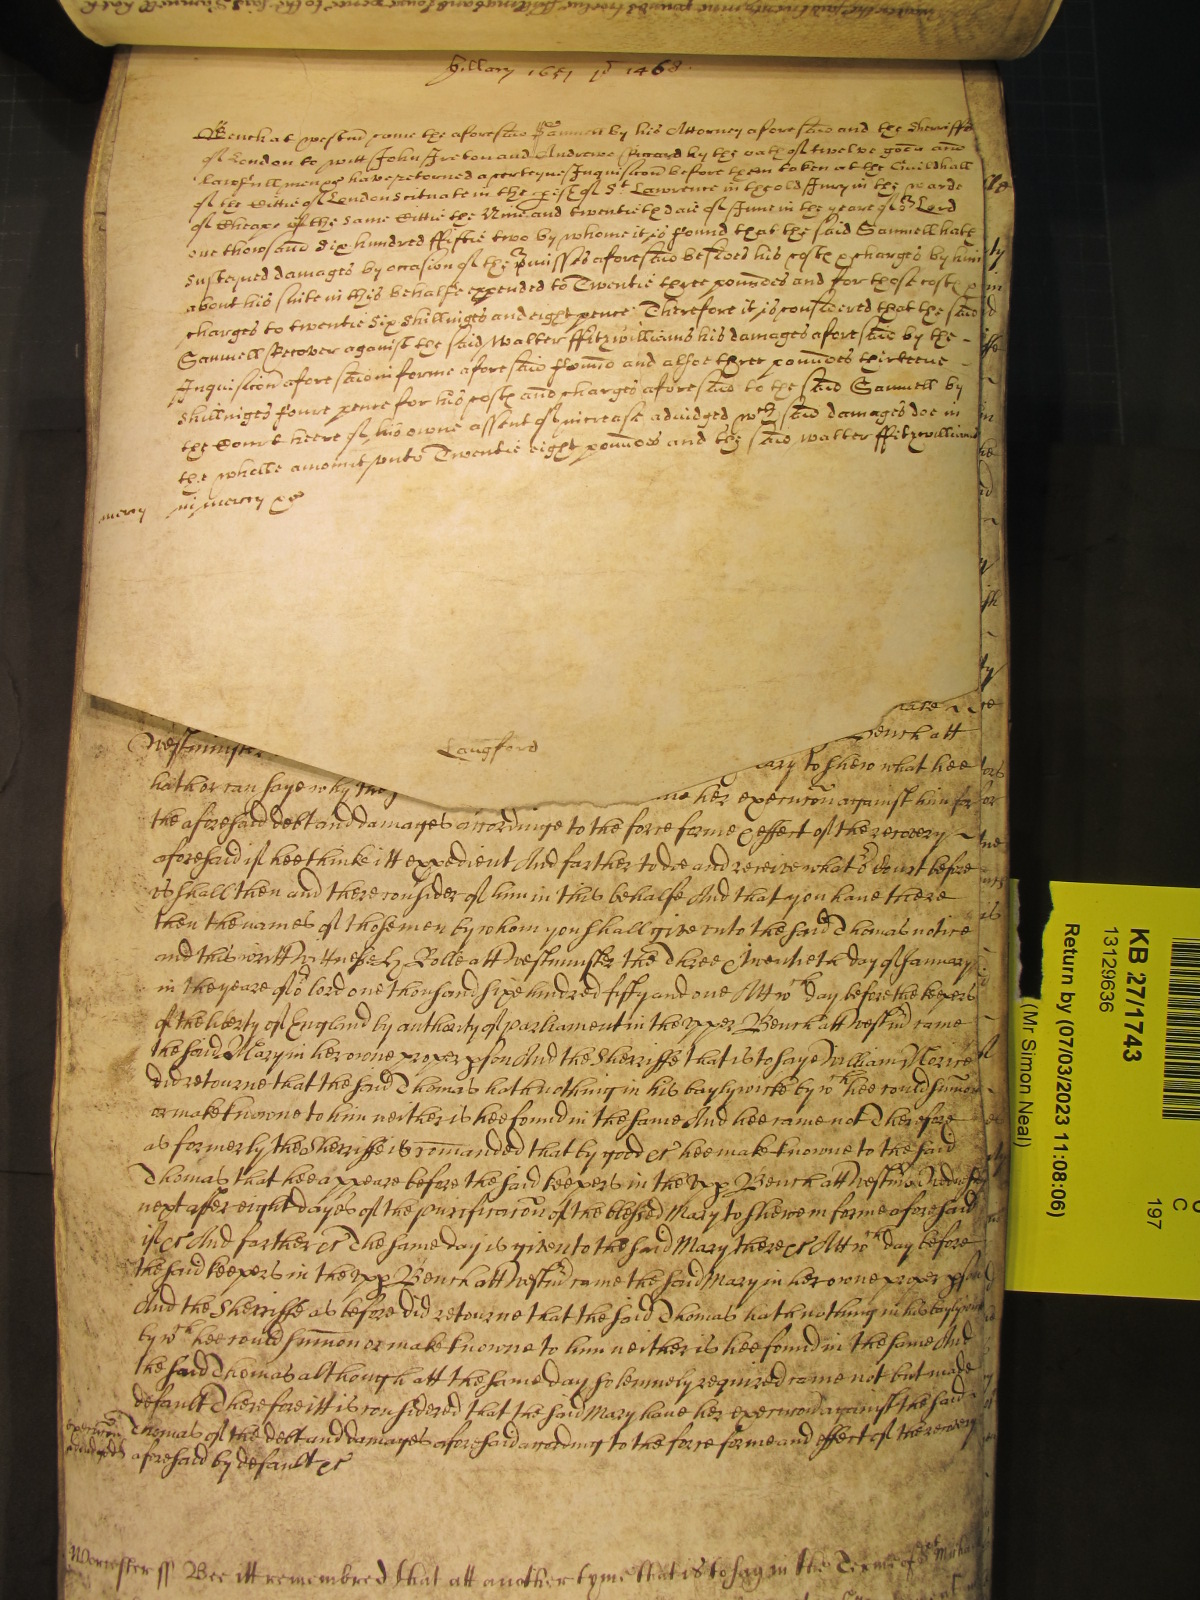 Hillary 1651 ro 1468.
Bench at westm came the aforesaid Samuell by his Attorney aforesaid and the Sherriffs
of London to witt John Ireton and Andrewe Ricard by the oath of twelve good and
lawfull men &c have returned a certeyne Inquisicon before them taken at the Guildhall
of the Cittie of London scituate in the pish of St Lawrence in the old Jury in the warde
of Cheape of the same Cittie the Nine and twentieth daie of June in the yeare of or Lord
one thowsand six hundred ffiftie two by whome it is found that the said Samuell hath
susteyned damages by occasion of the pmisses aforesaid besides his costs & charges by him
about his suite in this behalfe expended to Twentie three poundes and for those costs &
charges to twentie six shillinges and eight pence Therefore it is considered that the said
Samuell Recover against the said Walter ffitzwilliams his damages aforesaid by the
Inquisicion aforesaid in forme aforesaid found and alsoe three poundes thirteene
shillinges foure pence for his costs and charges aforesaid to the said Samuell by
the Court heere of his owne assent of increase adiudged wch said damages doe in
the wholle amount unto Twentie eight poundes and the said Walter ffitzwilliams
mercy in mercy &c
Langford
Bench att
Westminster
ary to shew what hee
hath or can saye why the
her execucon against him for
the aforesaid debt and damages accordinge to the force forme & effect of the recovery
aforesaid if hee thinke itt expedient And farther to doe and receive what or Court before
us shall then and there consider of him in this behalfe And that you have there
then the names of those men by whom you shall give unto the said Thomas notice
and this writt Wittnesse H. Rolle att Westminster the Three & twentieth day of January
in the yeare of or lord one thousand sixe hundred fifty and one Att wch day before the keepers
of the liberty of England by authority of parliament in the upper Bench att Westm came
the said Mary in her owne proper pson And the Sherriffe that is to saye William
did retourne that the said Thomas hath nothing in his baylywicke by wch hee could sumon
or make knowne to him neither is hee found in the same And hee came not Therefore
as formerly the Sherriffe is comanded that by good &c hee make knowne to the said
Thomas that hee appeare before the said keepers in the upp Bench att Westm
next after eight dayes of the purificacon of the blessed Mary to shewe in forme aforesaid
if &c And farther &c The same day is given to the said Mary there &c Att wch day before
the said keepers in the upp Bench att Westm came the said Mary in her owne proper pson
And the Sherriffe as before did retourne that the said Thomas hath nothing in his baylywicke
by wch hee could sumon or make knowne to him neither is hee found in the same And
the said Thomas although att the same day solemnely required came not but made
default Therefore itt is considered that the said Mary have her execucon against the said
execucon adiudged Thomas of the debt and damages aforesaid according to the force forme and effect of the recovery
aforesaid by default &c
Worcester ss Bee itt remembred that att another tyme that is to say in the Terme of St
KB 27/1743
13129636
Return by (07/03/2023 11:08:06)
(Mr Simon Neal)
197
C